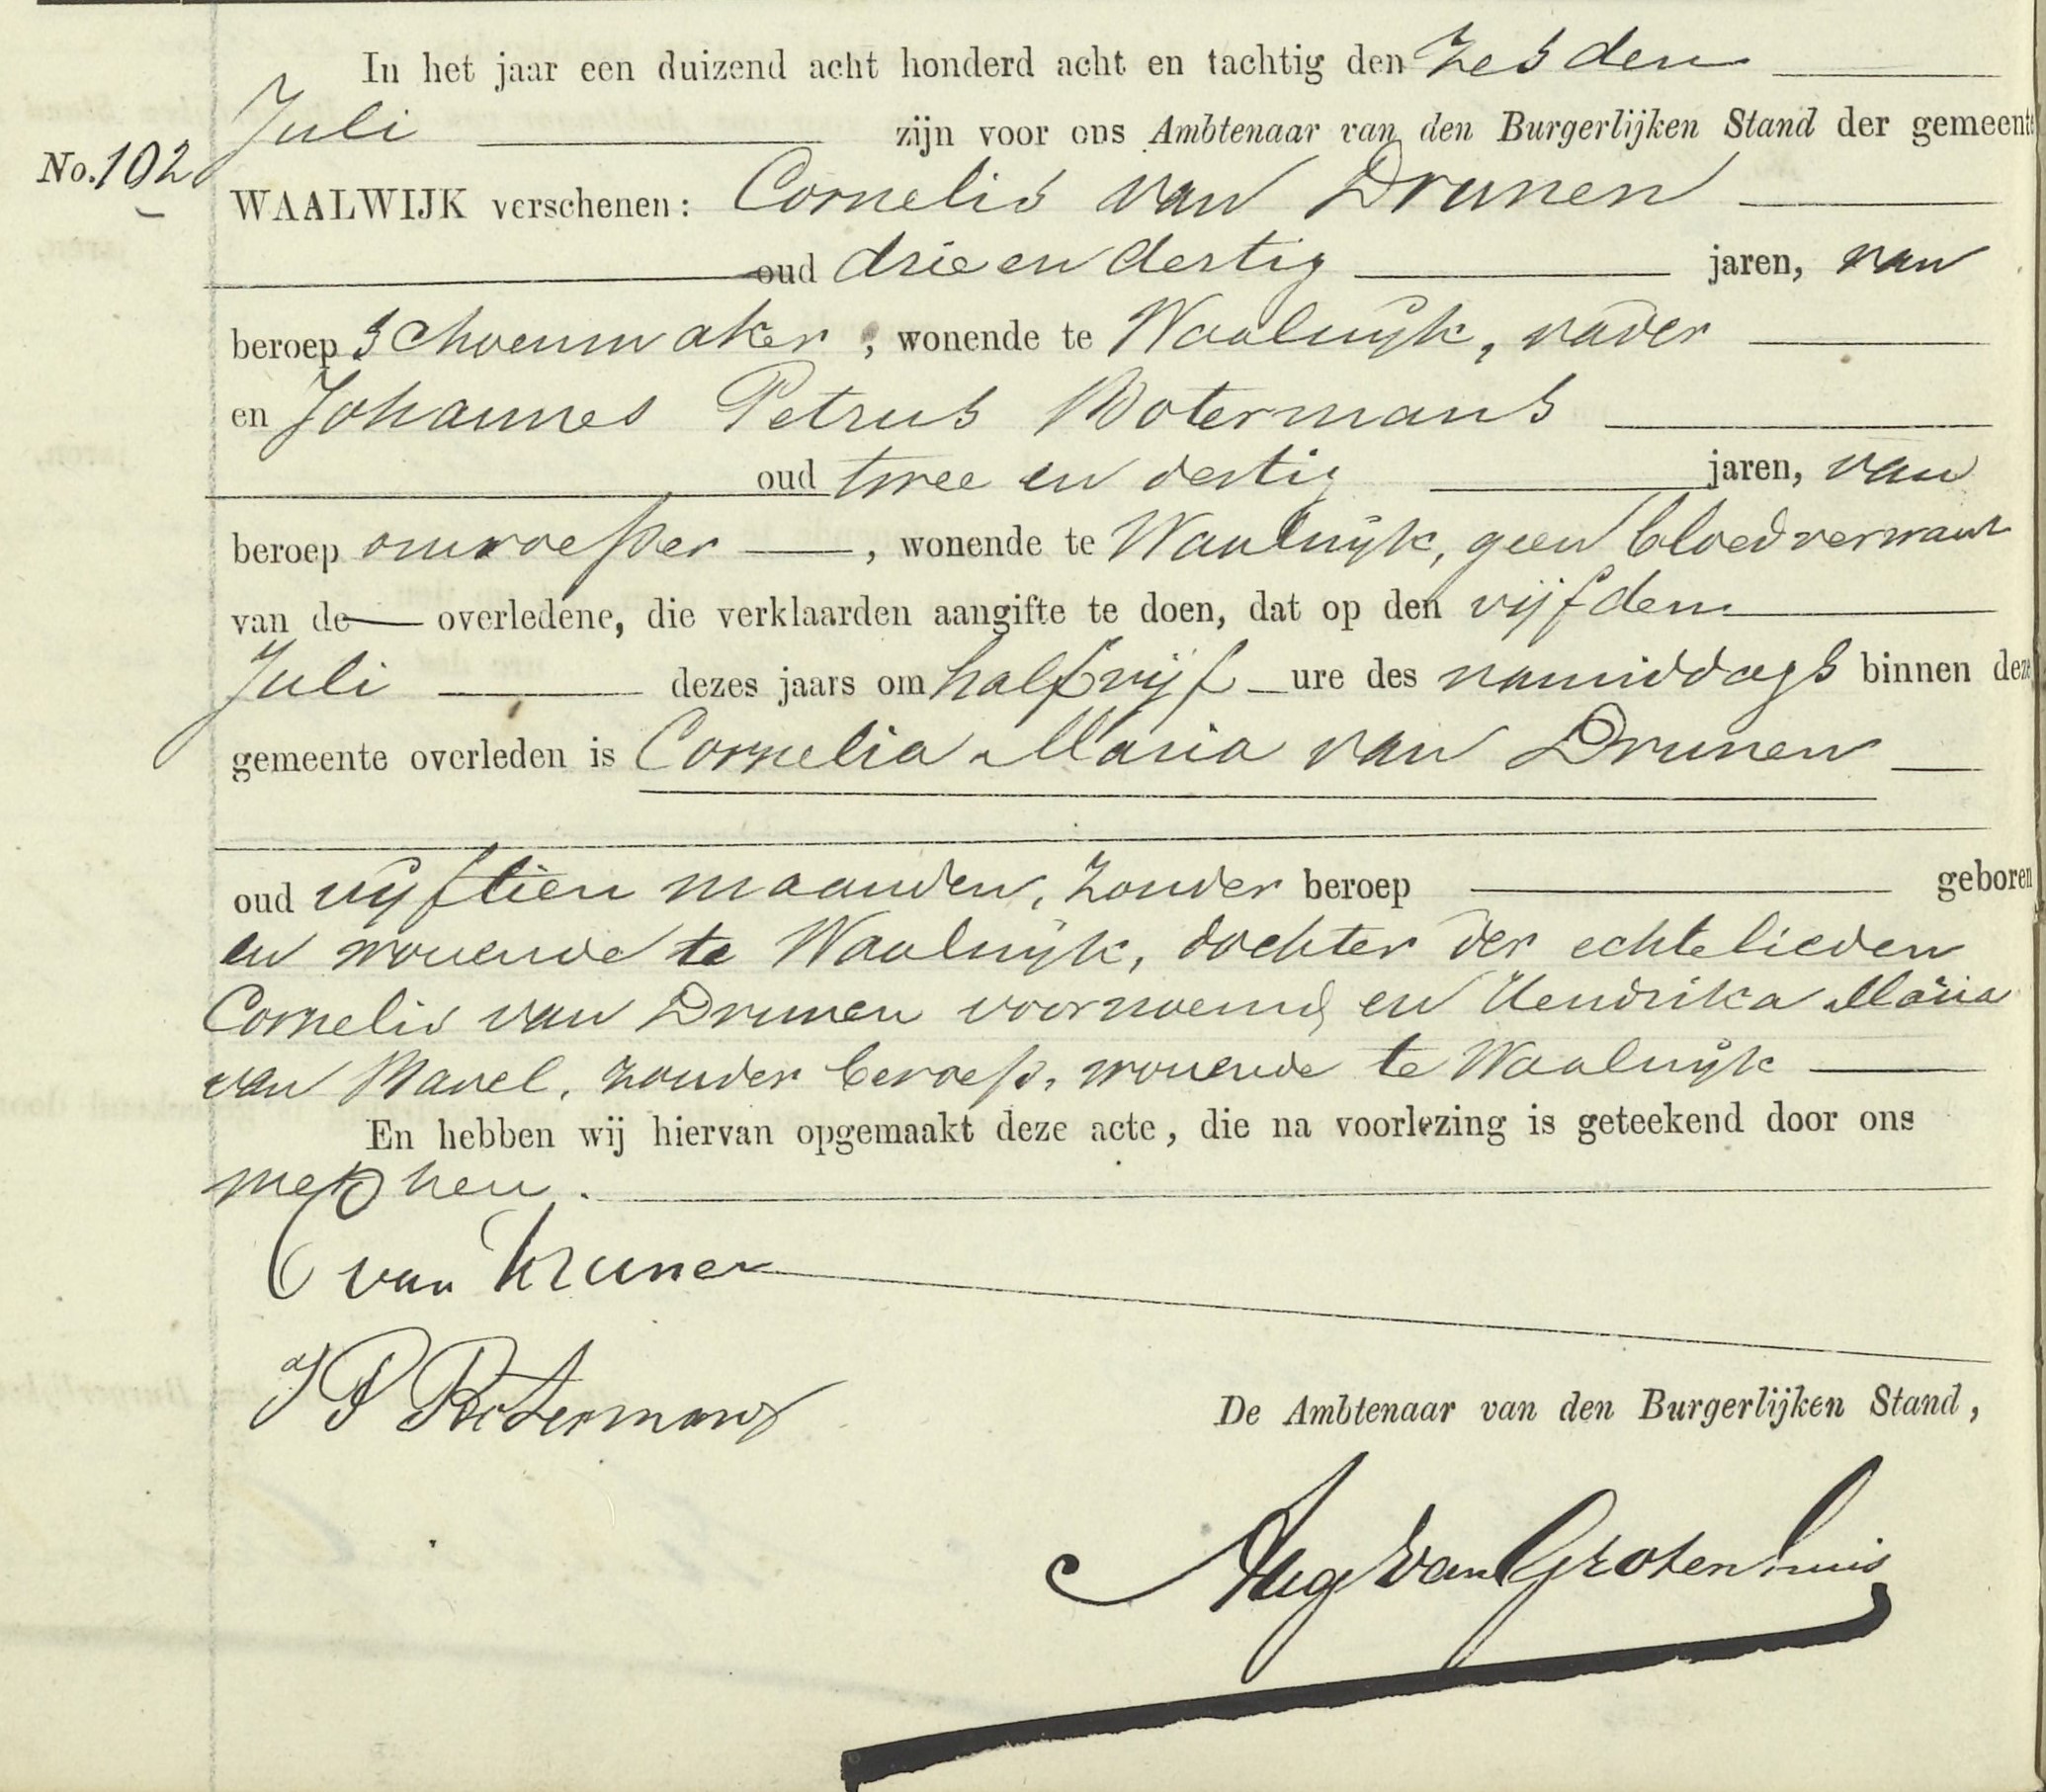 In het jaar een duizend acht honderd acht en tachtig den zesden
Juli zijn voor ons Ambtenaar van den Burgerlijken Stand der gemeente
No. 102
WAALWIJK verschenen: Cornelis van Drunen
oud drie en dertig jaren, van
beroep schoenmaker, wonende te Waalwijk, vader
en Johannes Petrus Botermans
oud twee en dertig jaren, van
beroep omroeper, wonende te Waalwijk, geen bloedverwant
van de overledene, die verklaarden aangifte te doen, dat op den vijfden
Juli dezes jaars om half vijf ure des namiddags binnen deze
gemeente overleden is Cornelia Maria van Drunen
oud vijftien maanden, zonder beroep geboren
en wonende te Waalwijk, dochter der echtelieden
Cornelis van Drunen voornoemd en Hendrika Maria
van Mavel, zonder beroep, wonende te Waalwijk
En hebben wij hiervan opgemaakt deze acte, die na voorlezing is geteekend door ons
met hen.
C van Drunen
J P Botermans
De Ambtenaar van den Burgerlijken Stand,
Aug van Grotenhuis